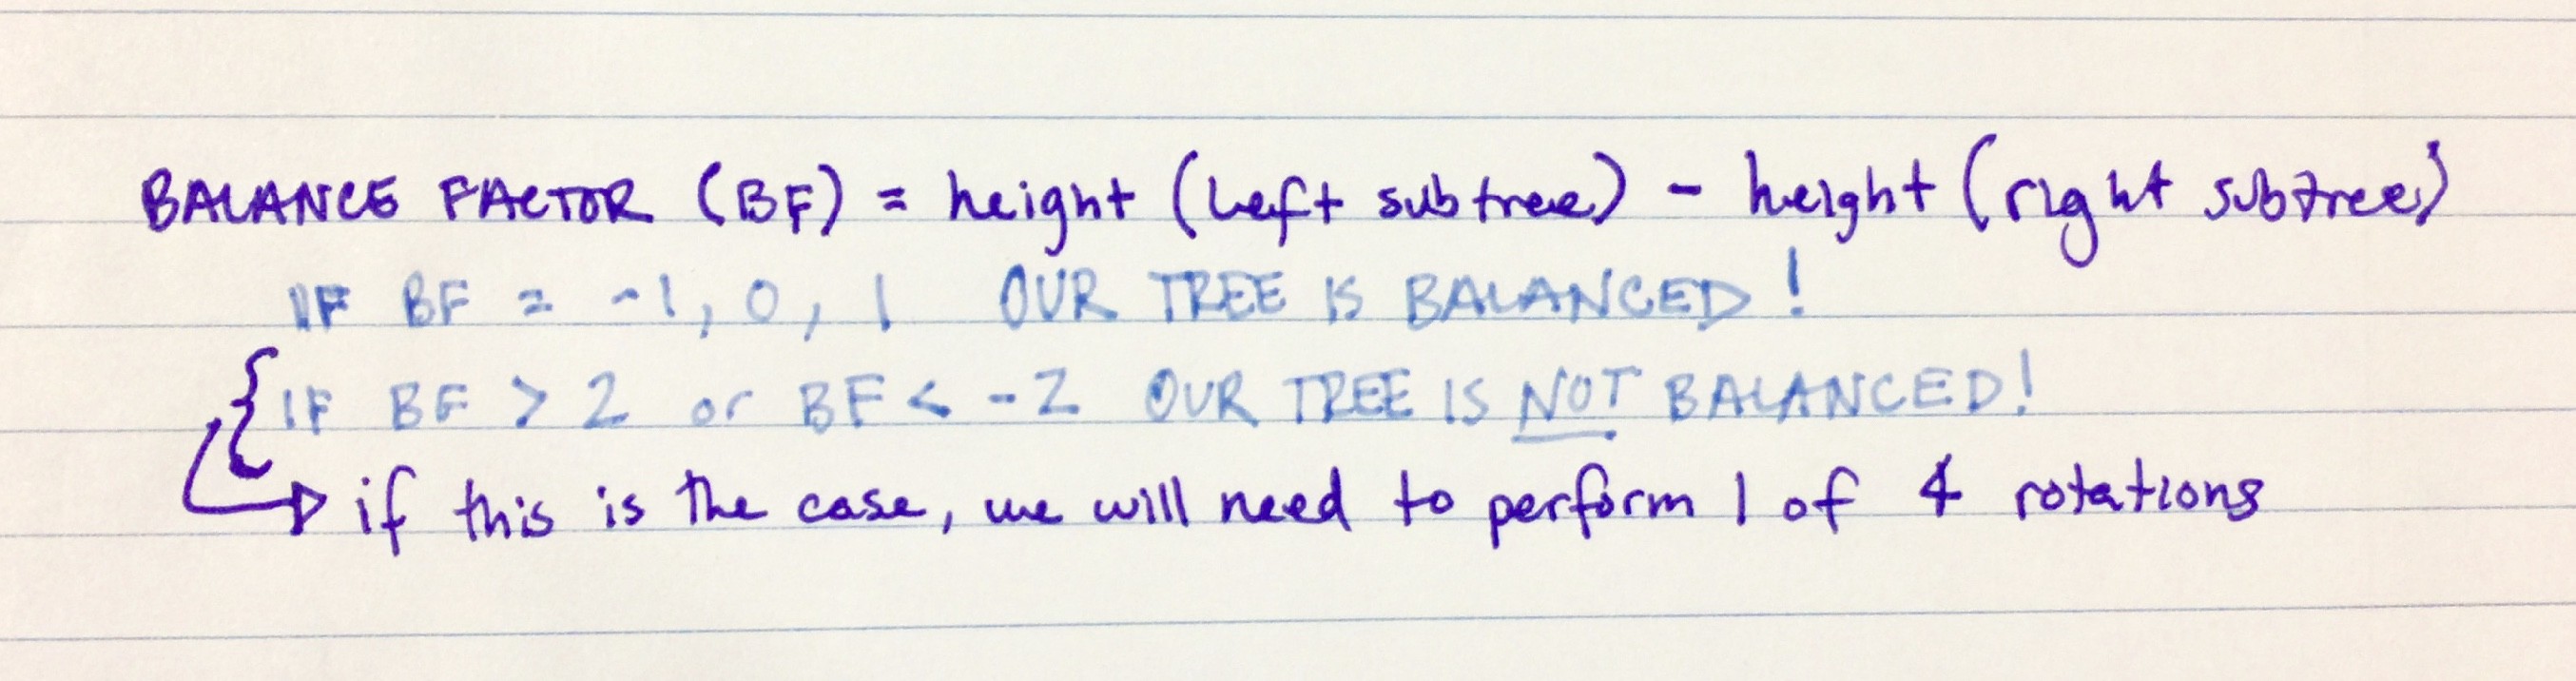 BALANCE FACTOR (BF) = height (left subtree) - height (right subtree)
IF BF = -1, 0, 1 OUR TREE IS BALANCED!
IF BF > 2 or BF < -2 OUR TREE IS NOT BALANCED!
if this is the case, we will need to perform 1 of 4 rotations